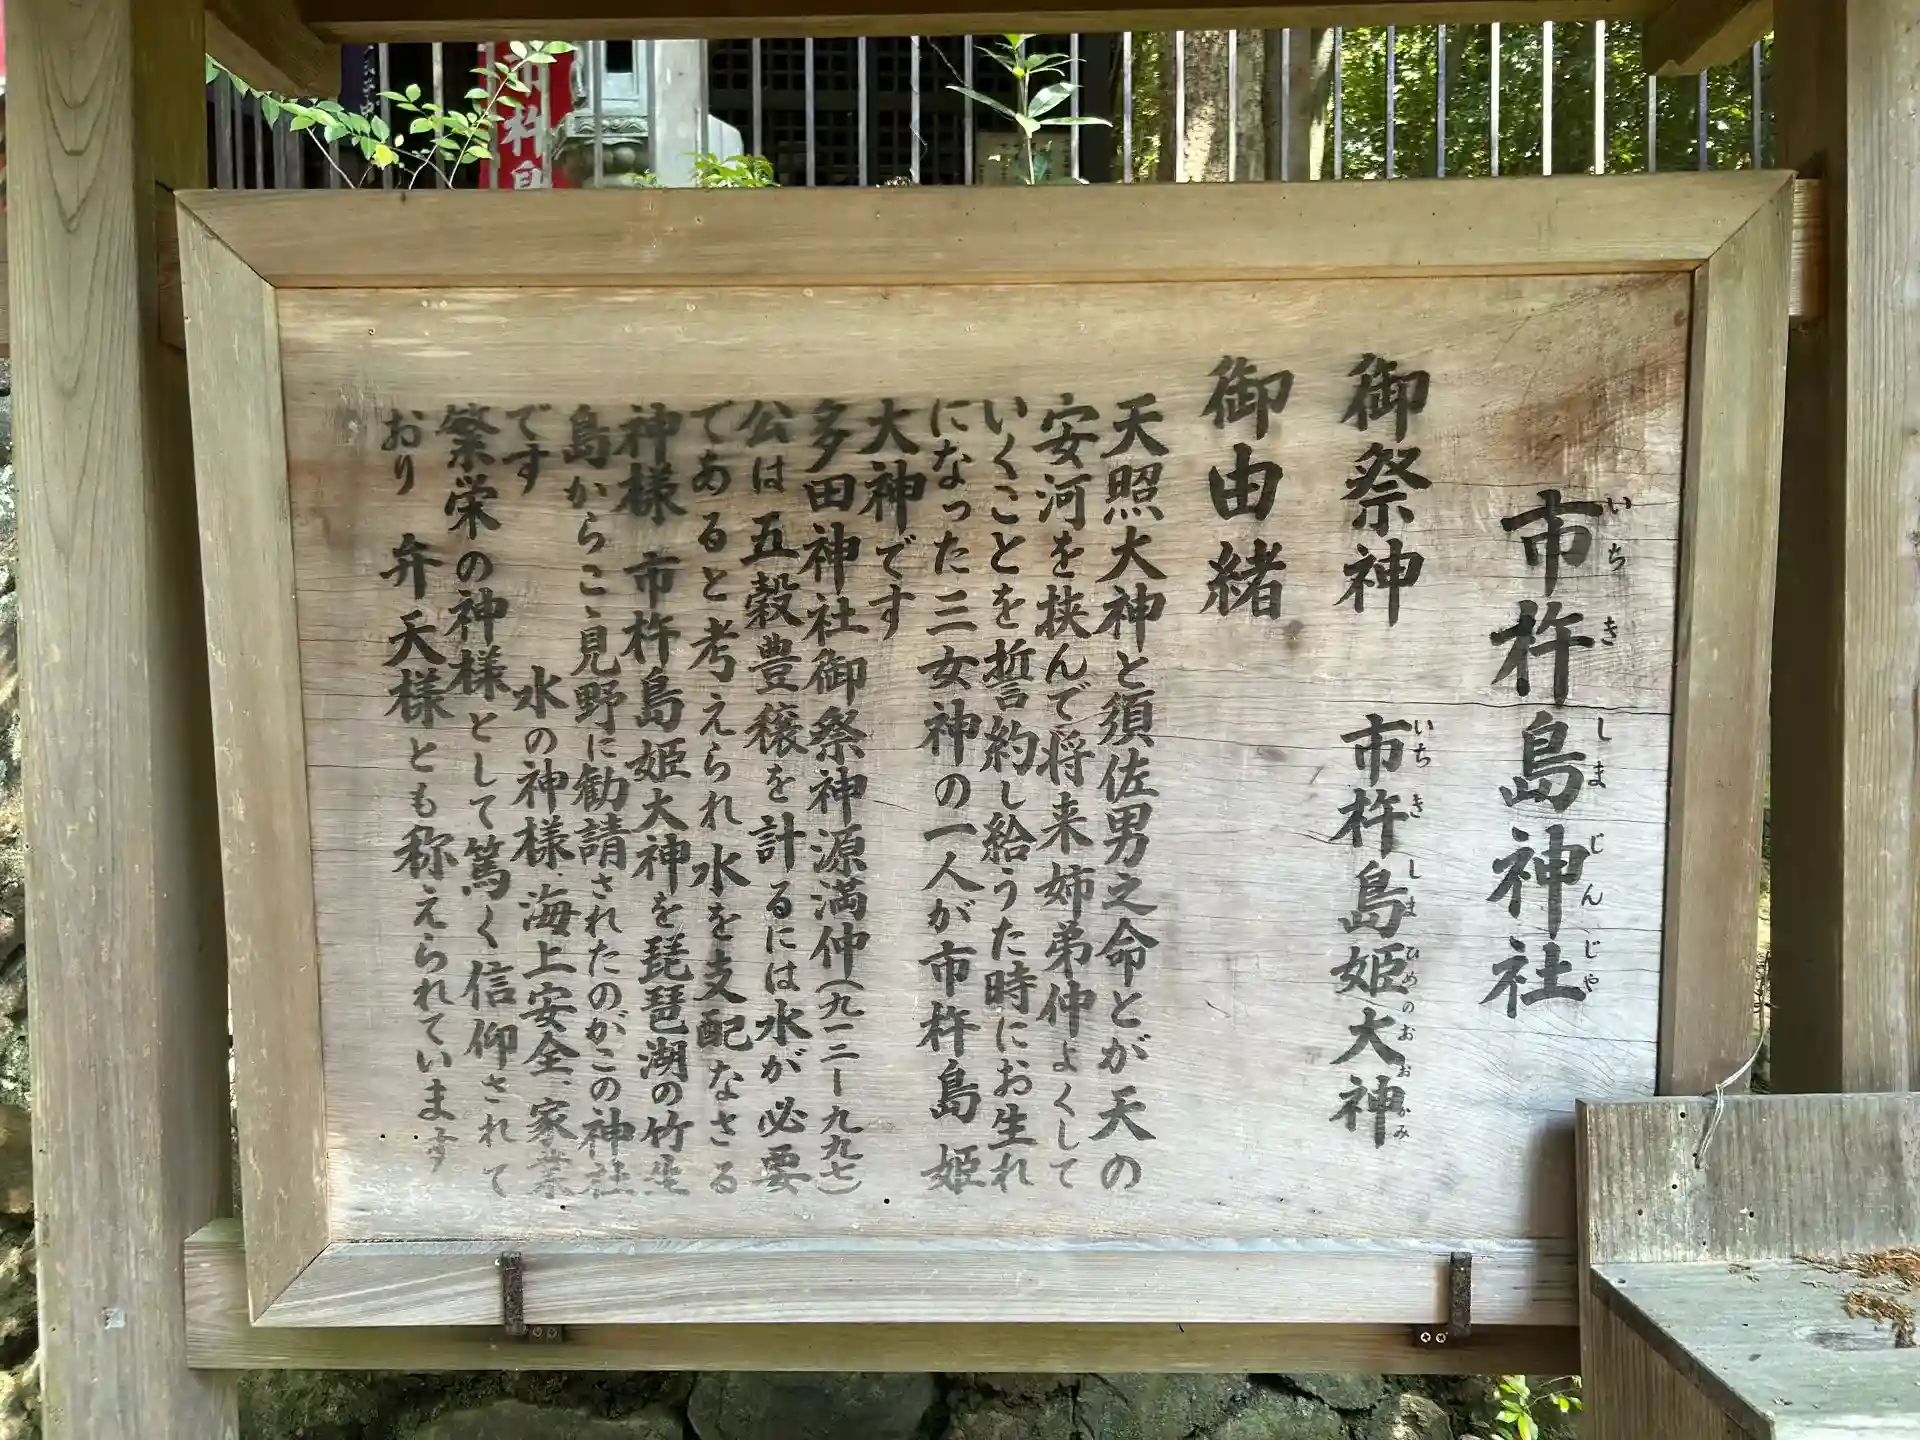 市杵島神社
いちきしまじんじゃ
御祭神 市杵島姫大神
いちきしまひめのおおかみ
御由緒
天照大神と須佐男之命とが天の
安河を挟んで将来姉弟仲よくして
いくことを誓約し給うた時にお生れ
になった三女神の一人が市杵島姫
大神です
多田神社御祭神源満仲(九一二ー九九七)
公は五穀豊穣を計るには水が必要
であると考えられ水を支配なさる
神様 市杵島姫大神を琵琶湖の竹生
島からこゝ見野に勧請されたのがこの神社
です 水の神様、海上安全、家業
繁栄の神様として篤く信仰されて
おり 弁天様とも称えられています
市杵島